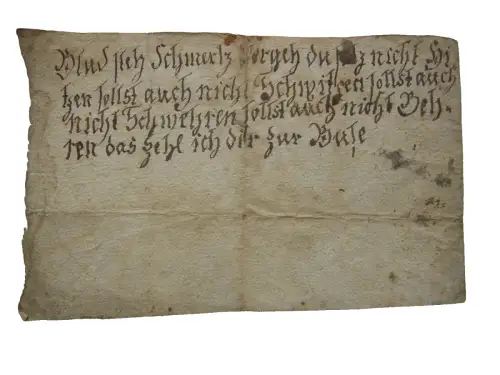 Blud steh Schmertz vergeh du solz nicht Hi
tzen sollst auch nicht Schwitzen sollst auch
nicht Schwehren sollst auch nicht Geh-
ren das zehl ich dir zur Buse